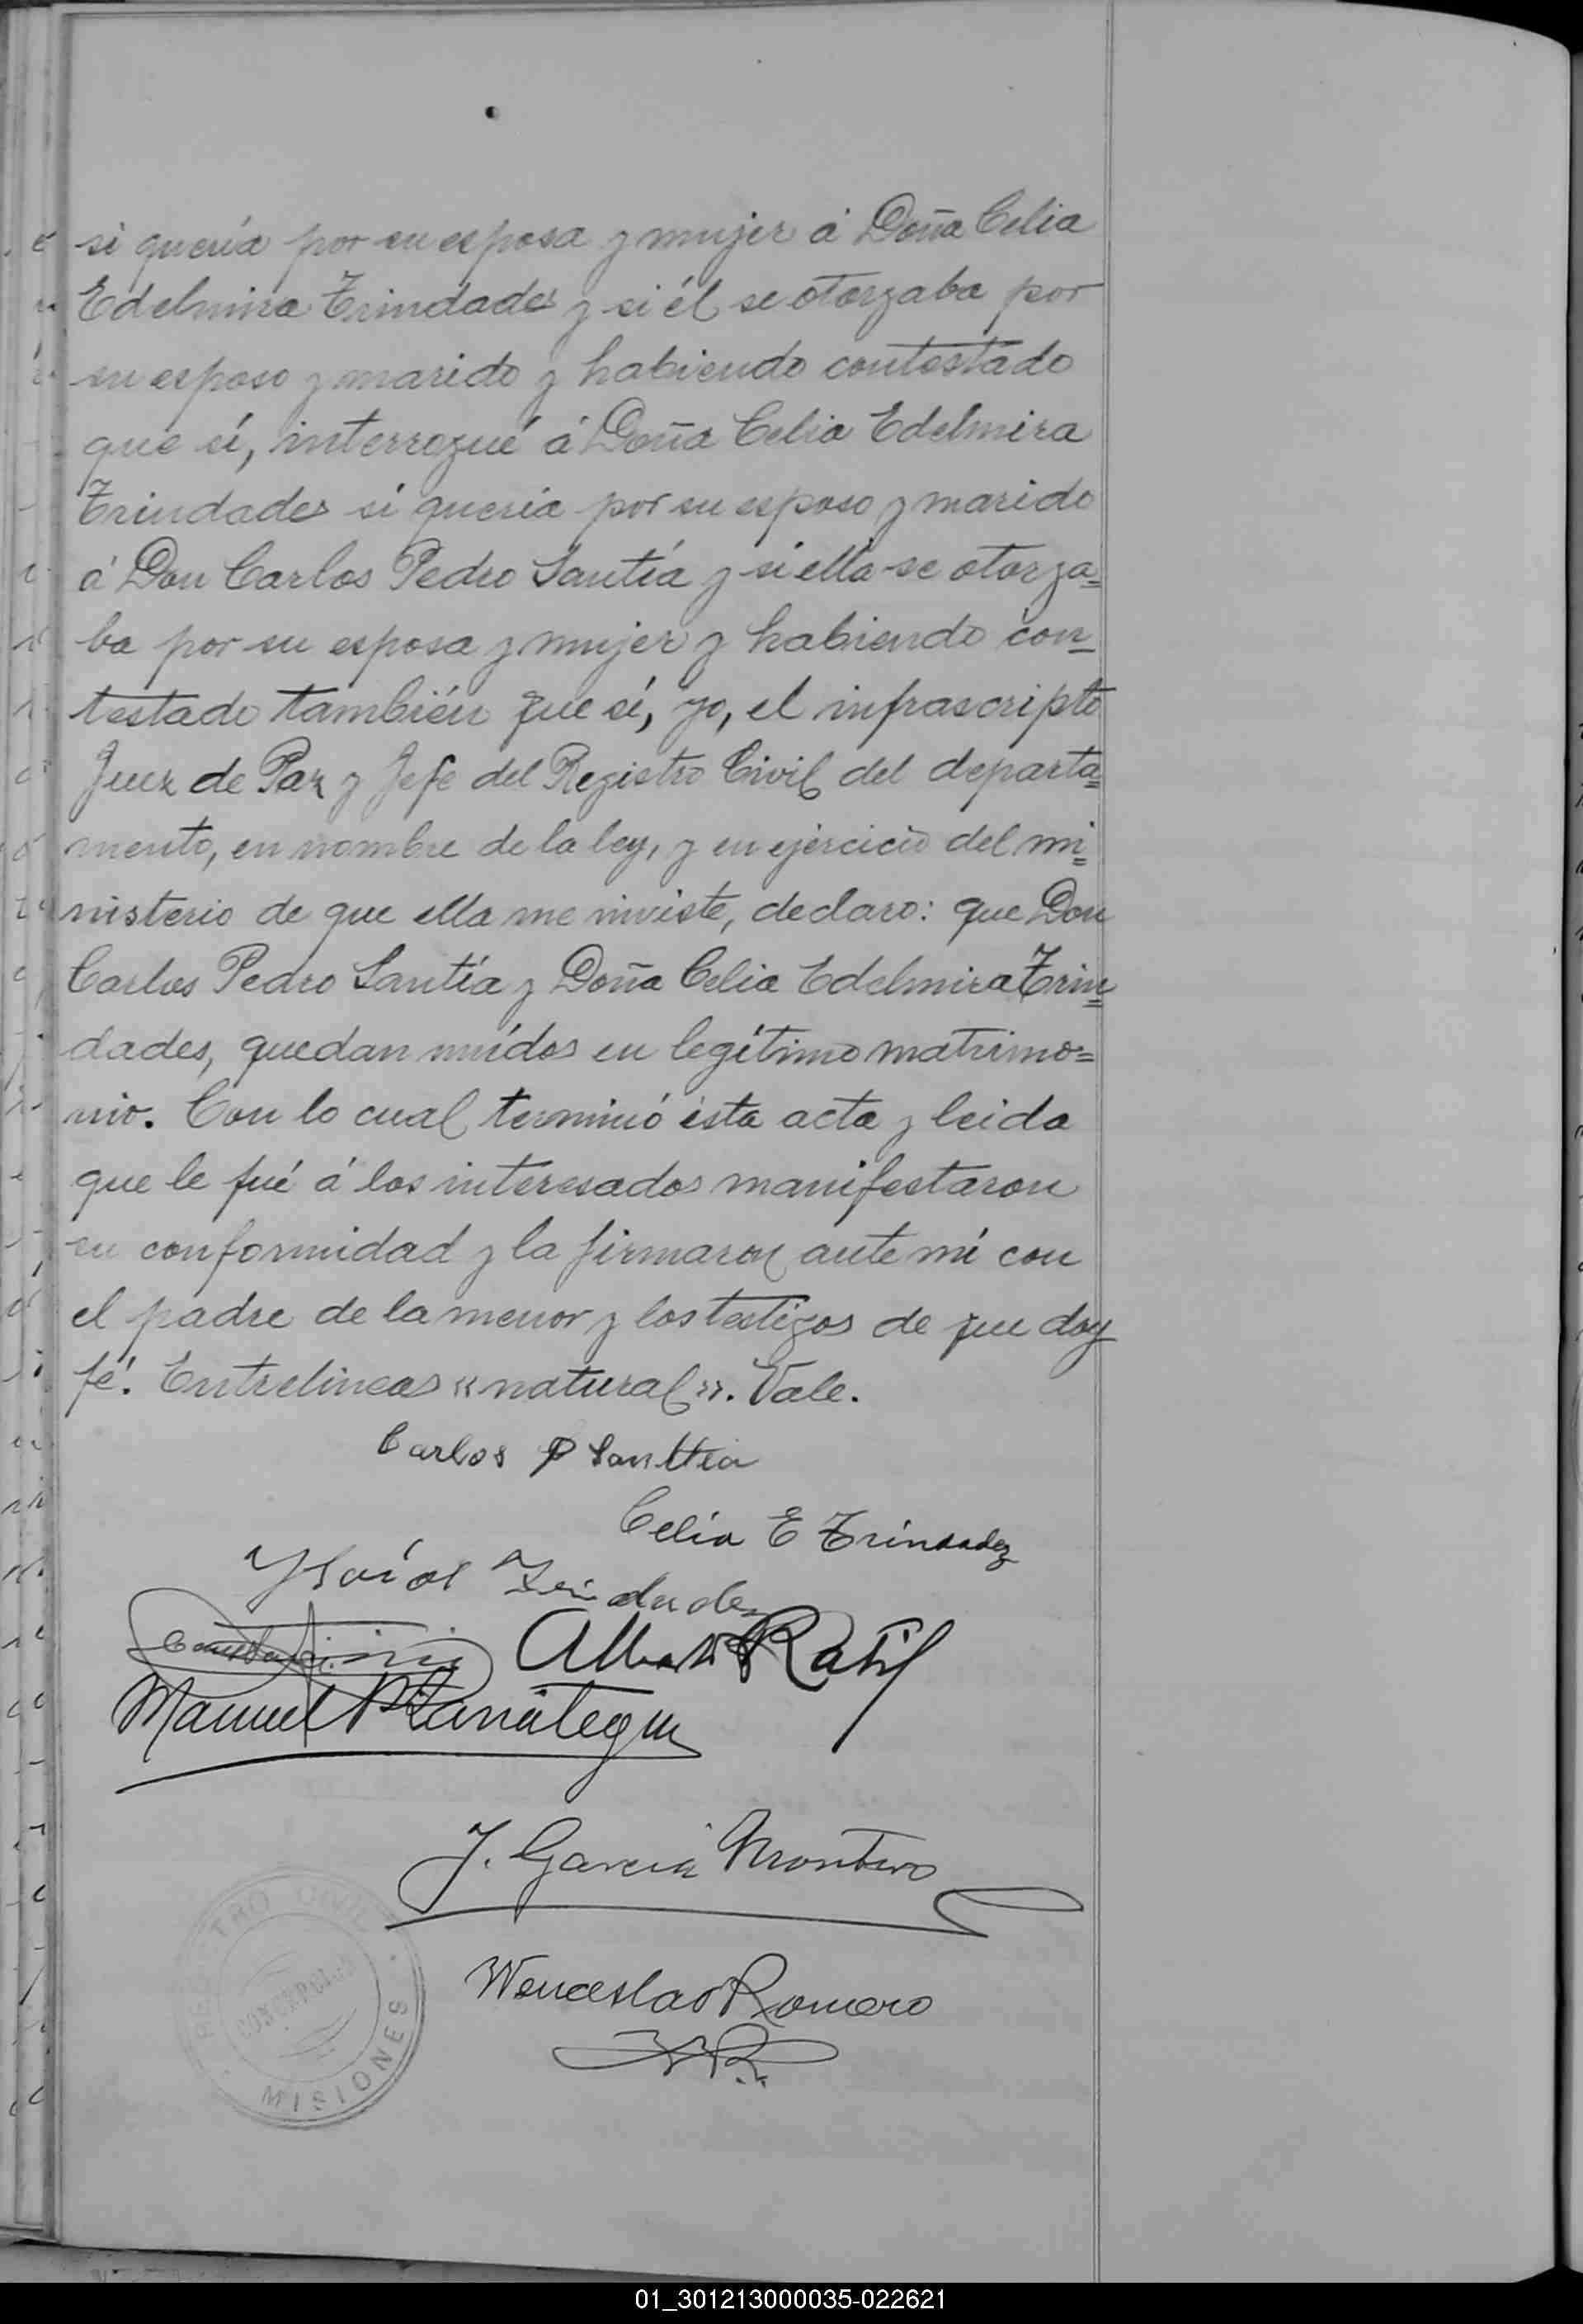 si quería por su esposa y mujer á Doña Celia
Edelmira Trindades y si él se otorgaba por
su esposo y marido y habiendo contestado
que sí, interrogué á Doña Celia Edelmira
Trindades si quería por su esposo y marido
á Don Carlos Pedro Santía y si ella se otorga=
ba por su esposa y mujer y habiendo con=
testado también que sí, yo, el infrascripto
Juez de Paz y Jefe del Registro Civil del departa=
mento, en nombre de la ley, y en ejercicio del mi=
nisterio de que ella me inviste, declaro: que Don
Carlos Pedro Santía y Doña Celia Edelmira Trin=
dades, quedan unídos en legítimo matrimo=
nio. Con lo cual terminó ésta acta y leida
que le fué á los interesados manifestaron
su conformidad y la firmaron ante mí con
el padre de la menor y los testigos de que doy
fé. Entrelineas «natural». Vale.
Carlos P Santtia
Celia E Trindadez
Trindadez
Alberto
Manuel
J. Garcia Montero
Wenceslao Romero
W R.
REGISTRO CIVIL
CONCEPCION
MISIONES
01_301213000035-022621